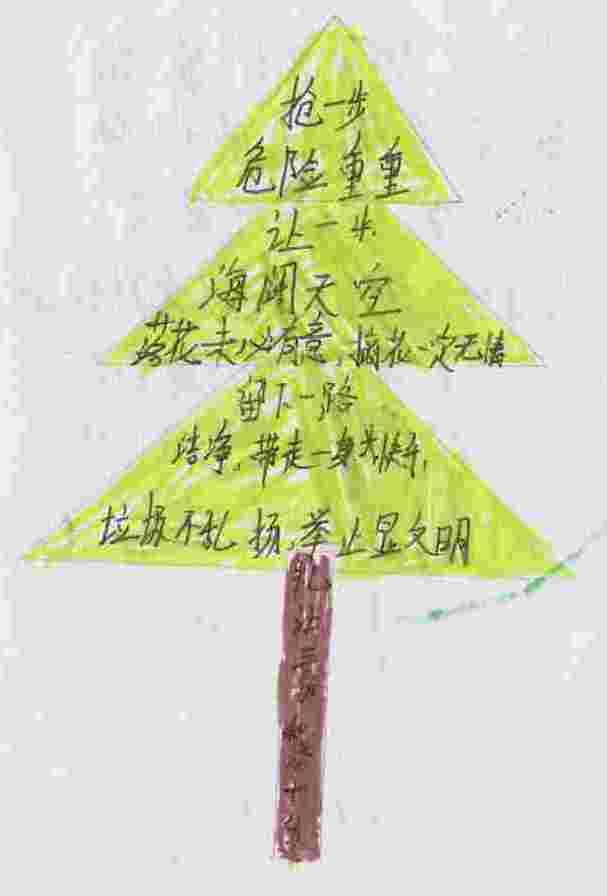 抢一步
危险重重
让一步
海阔天空
落花未必有意，摘花一定无情
留下一路
洁净，带走一身快乐，
垃圾不乱扬，举止显文明
礼让三分 和谐十分